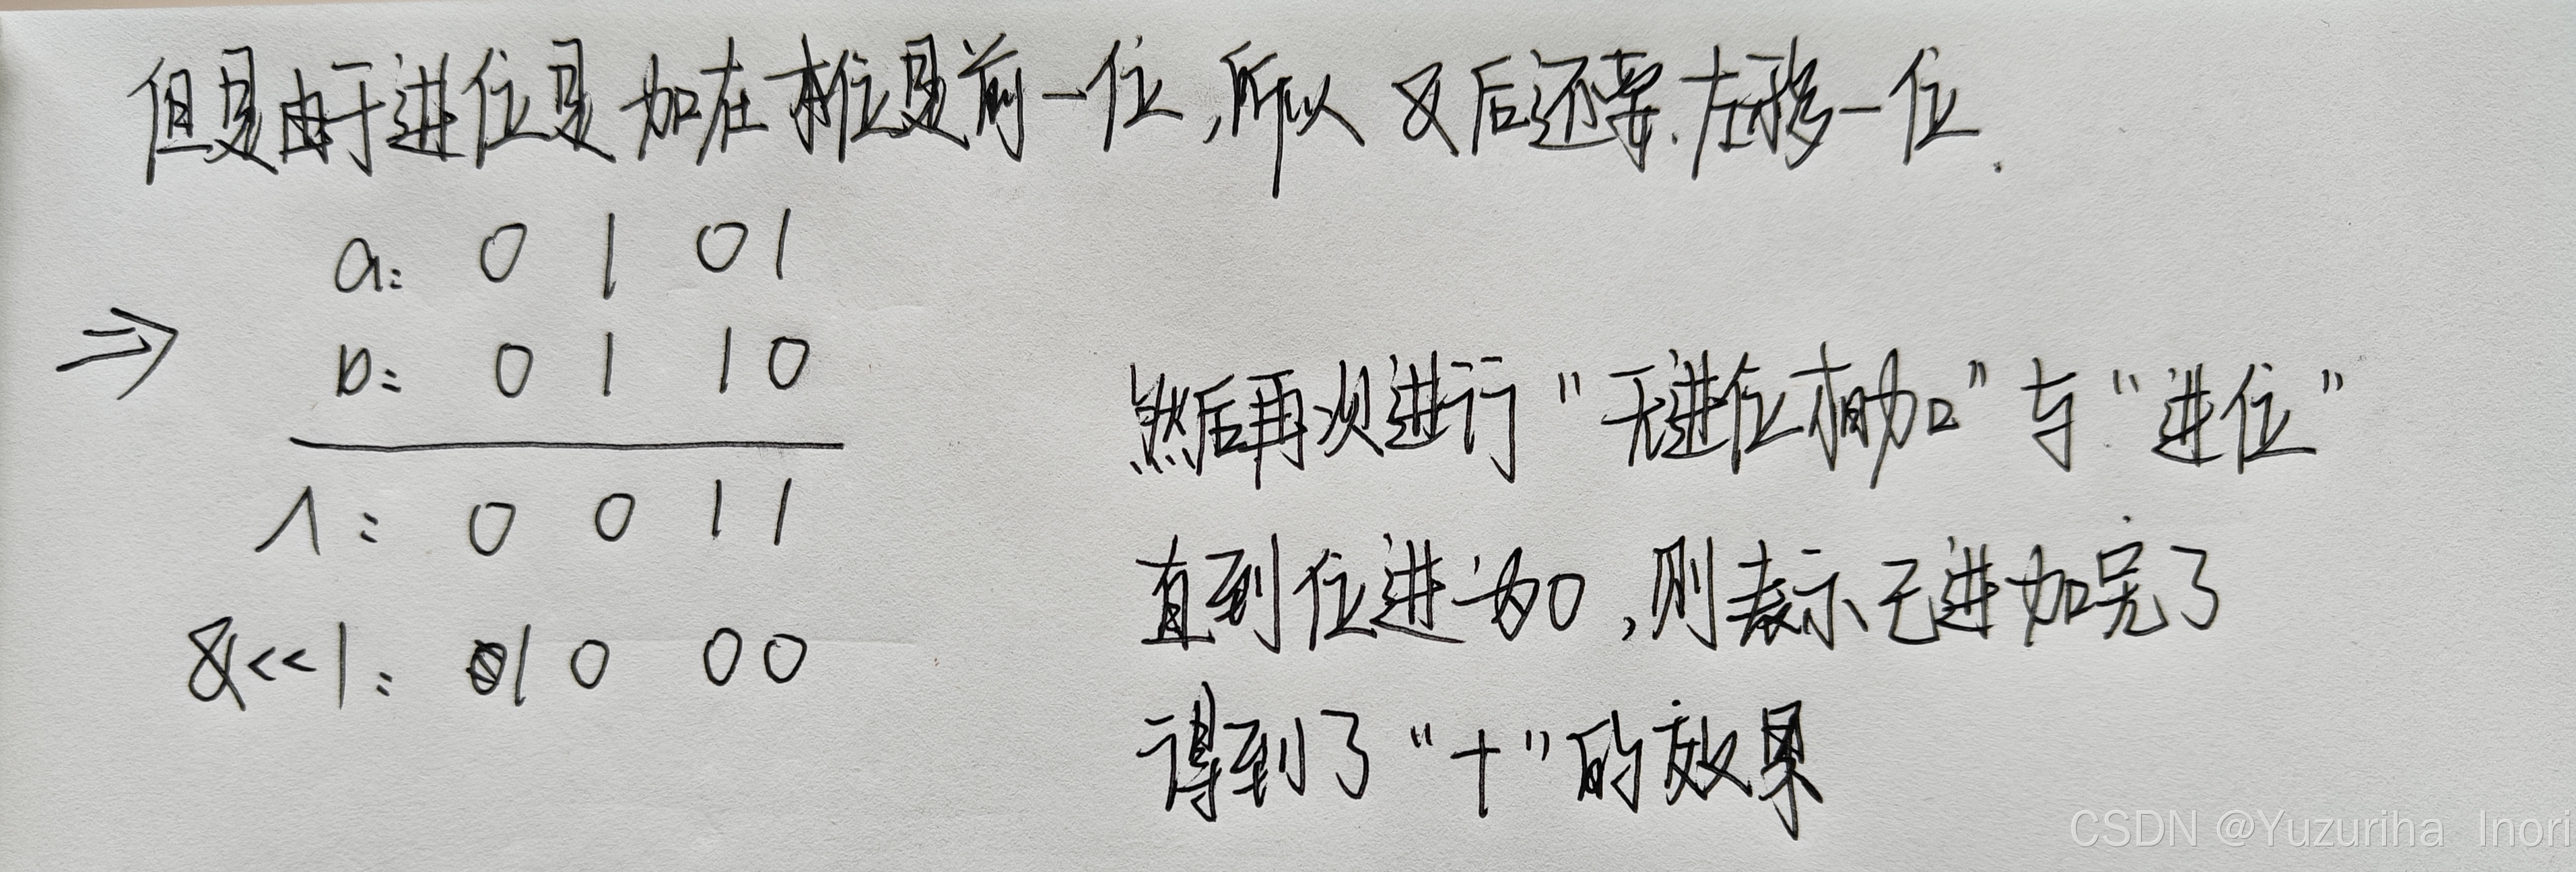 但是由于进位是加在本位是前一位,所以 & 后还要左移一位.
a: 0 1 0 1
⇒
b: 0 1 1 0
∧: 0 0 1 1
&<<1: 1 0 0 0
然后再次进行"无进位相加"与"进位"
直到位进为0,则表示无进加完了
得到了"+"的效果
CSDN @Yuzuriha Inori